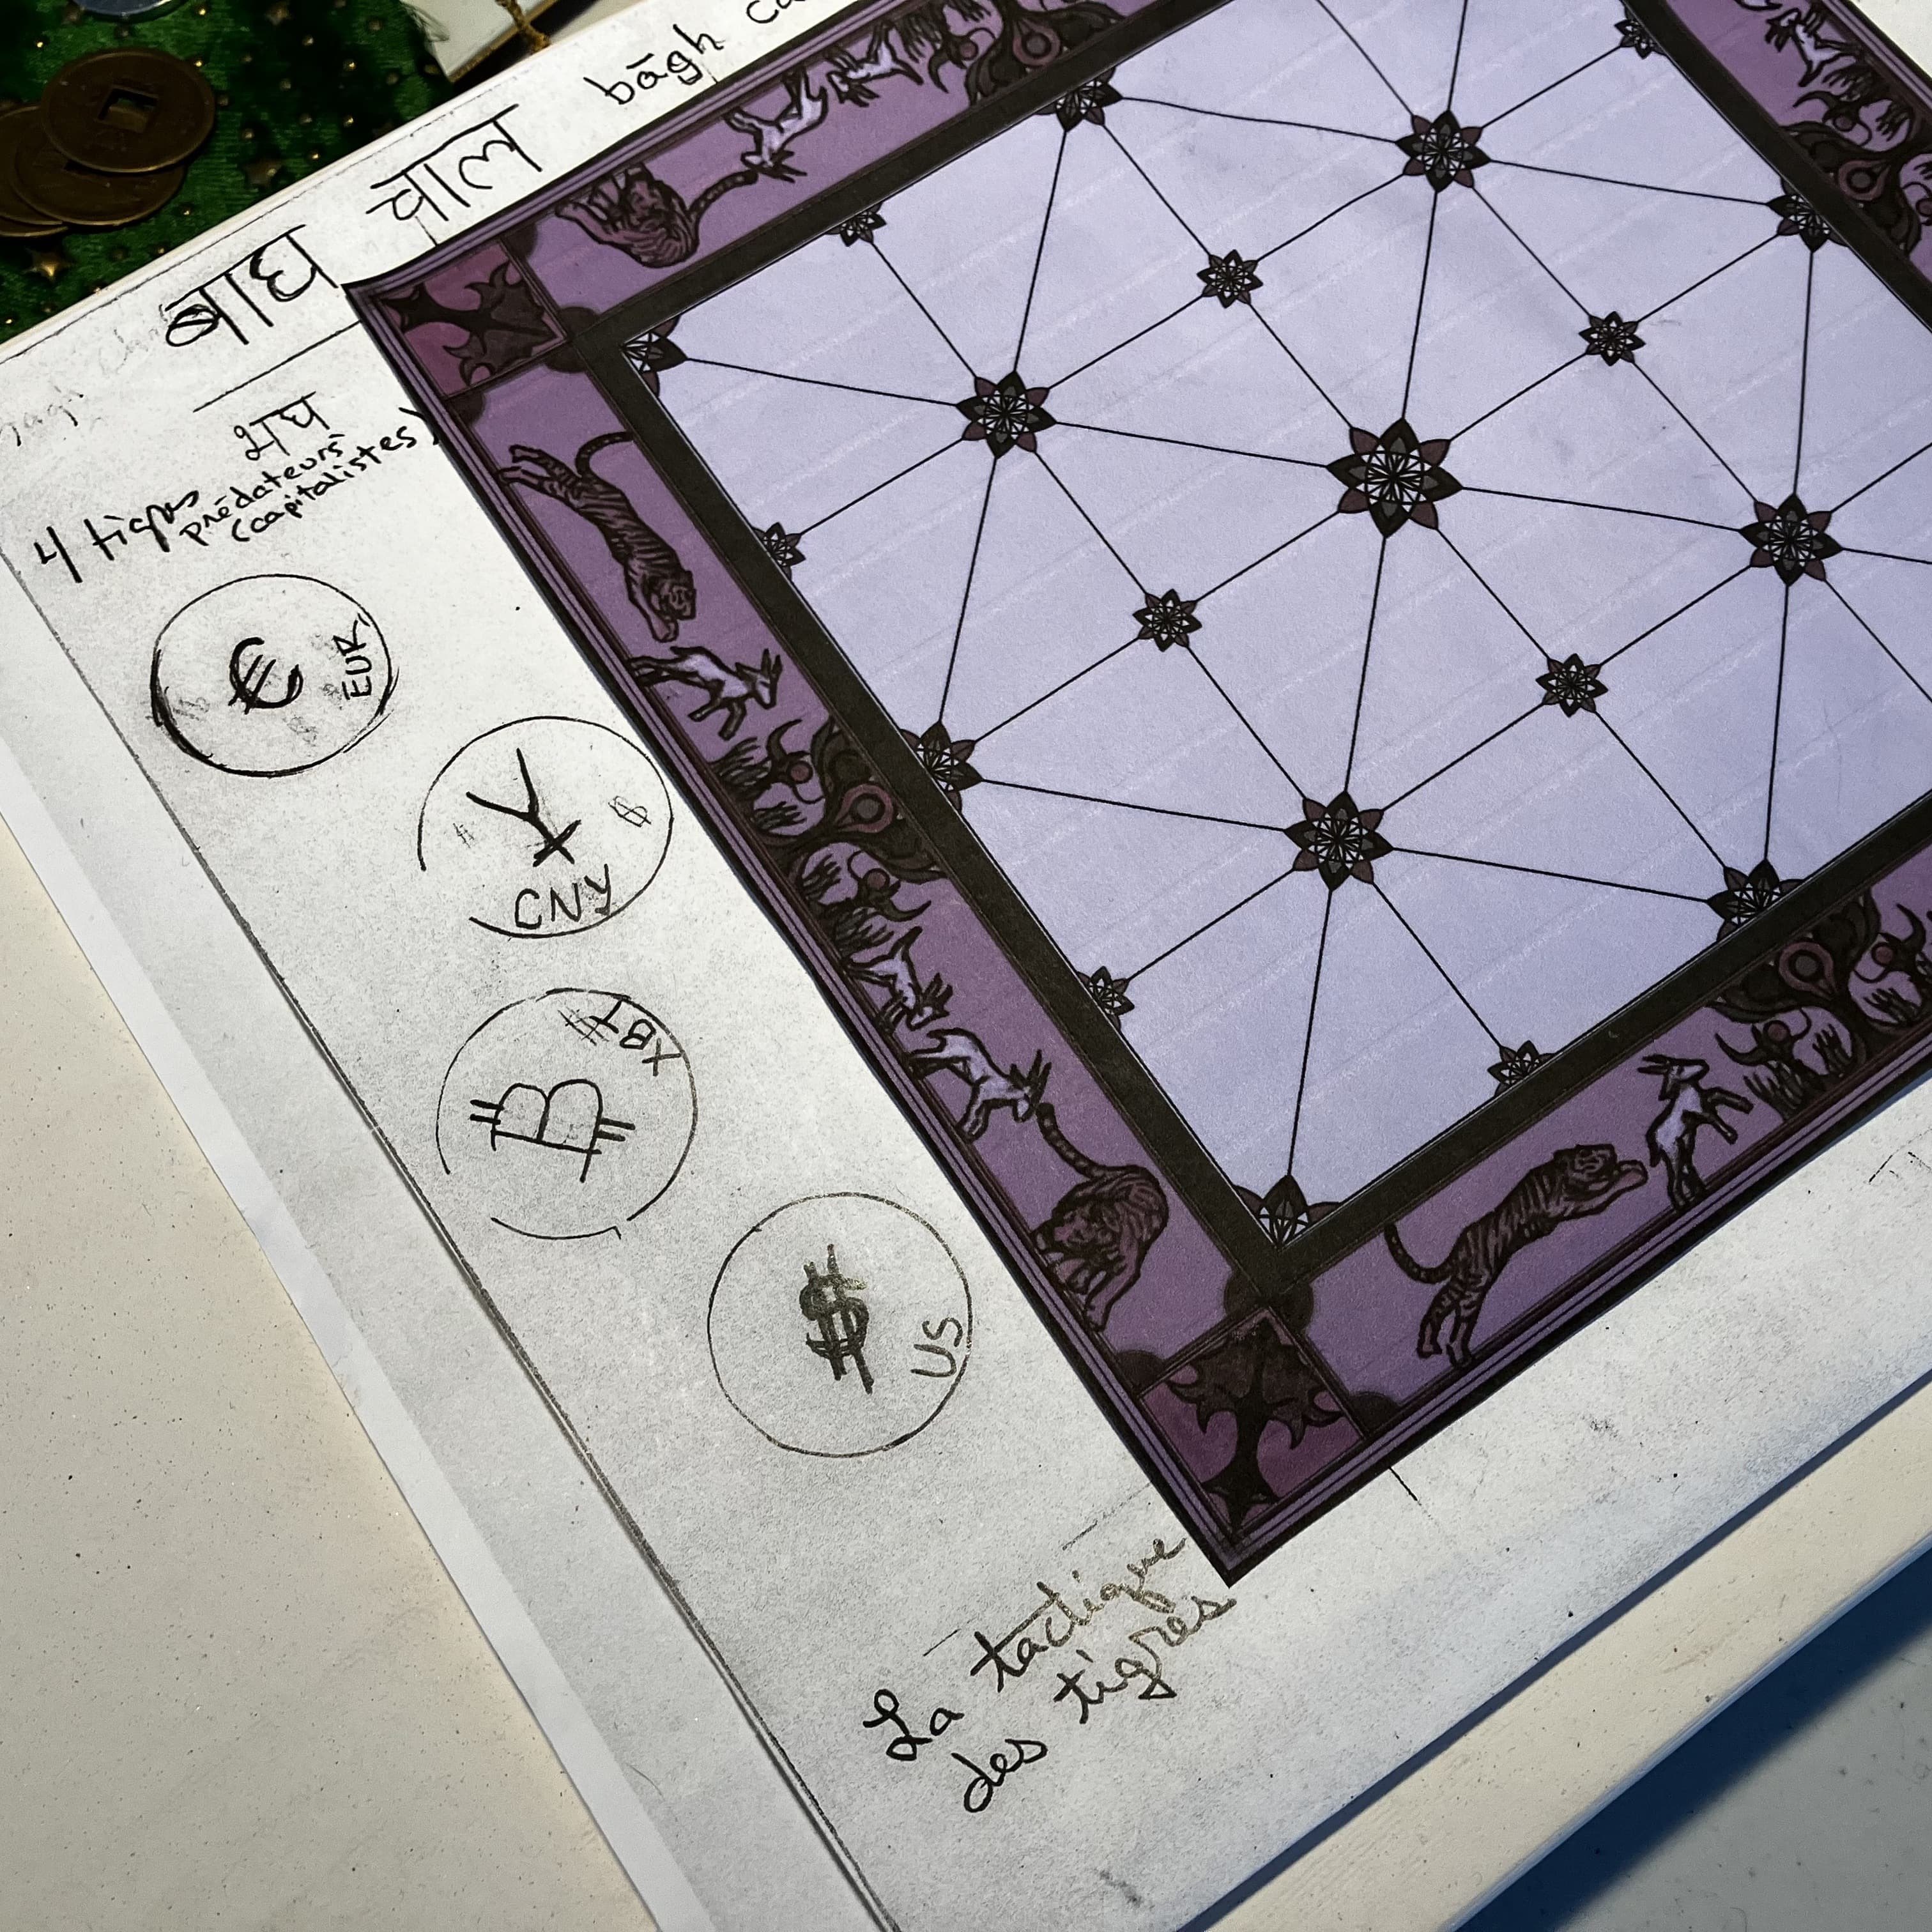 बाघ चाल bāgh ca
भाघ
4 tigres
prédateurs
(capitalistes)
€ EUR
¥ CNY
₿ XBT
$ US
La tactique
des tigres